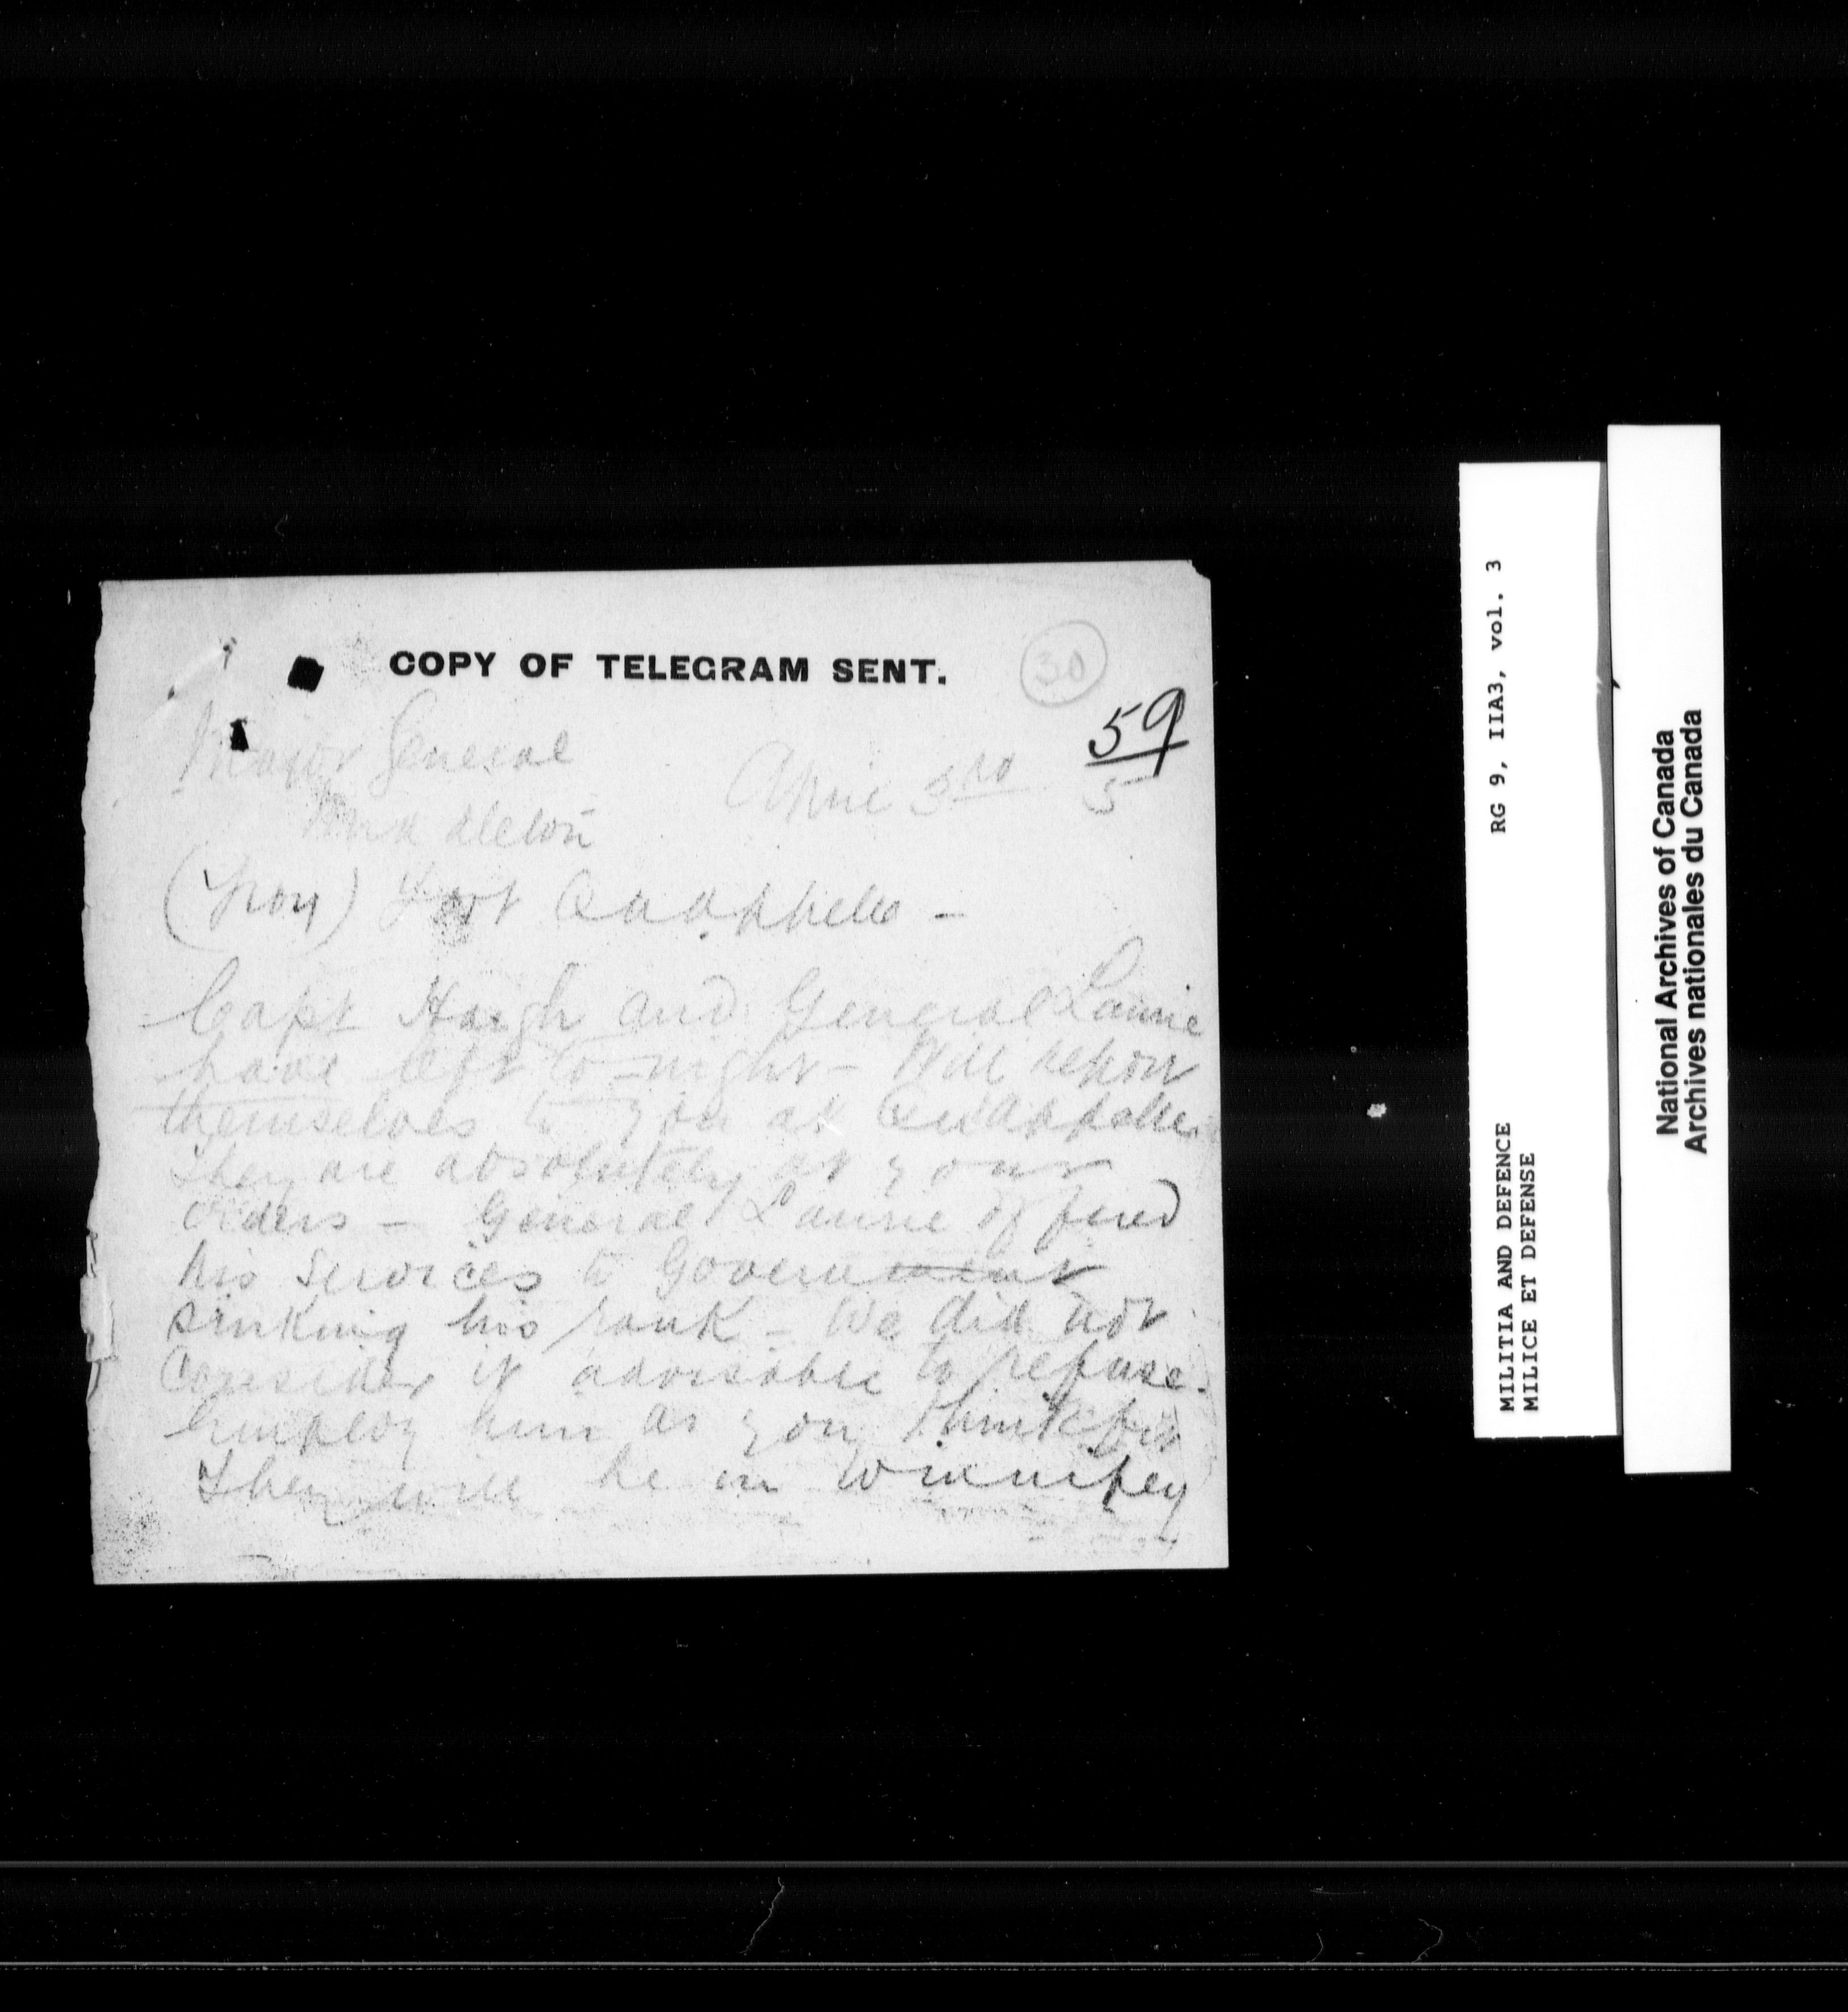 COPY OF TELEGRAM SENT.
30
59
5
Major General
Middleton
April 3rd
(Troy) Fort Quappelle -
Capt Haigh and General Laurie
have left to-night - Will report
themselves to you at Quappelle.
They are absolutely at your
orders - General Laurie offered
his services to Government
sinking his rank - We did not
consider it advisable to refuse.
Employ him as you think fit
They will be in Winnipeg
RG 9, IIA3, vol. 3
MILITIA AND DEFENCE
MILICE ET DEFENSE
National Archives of Canada
Archives nationales du Canada